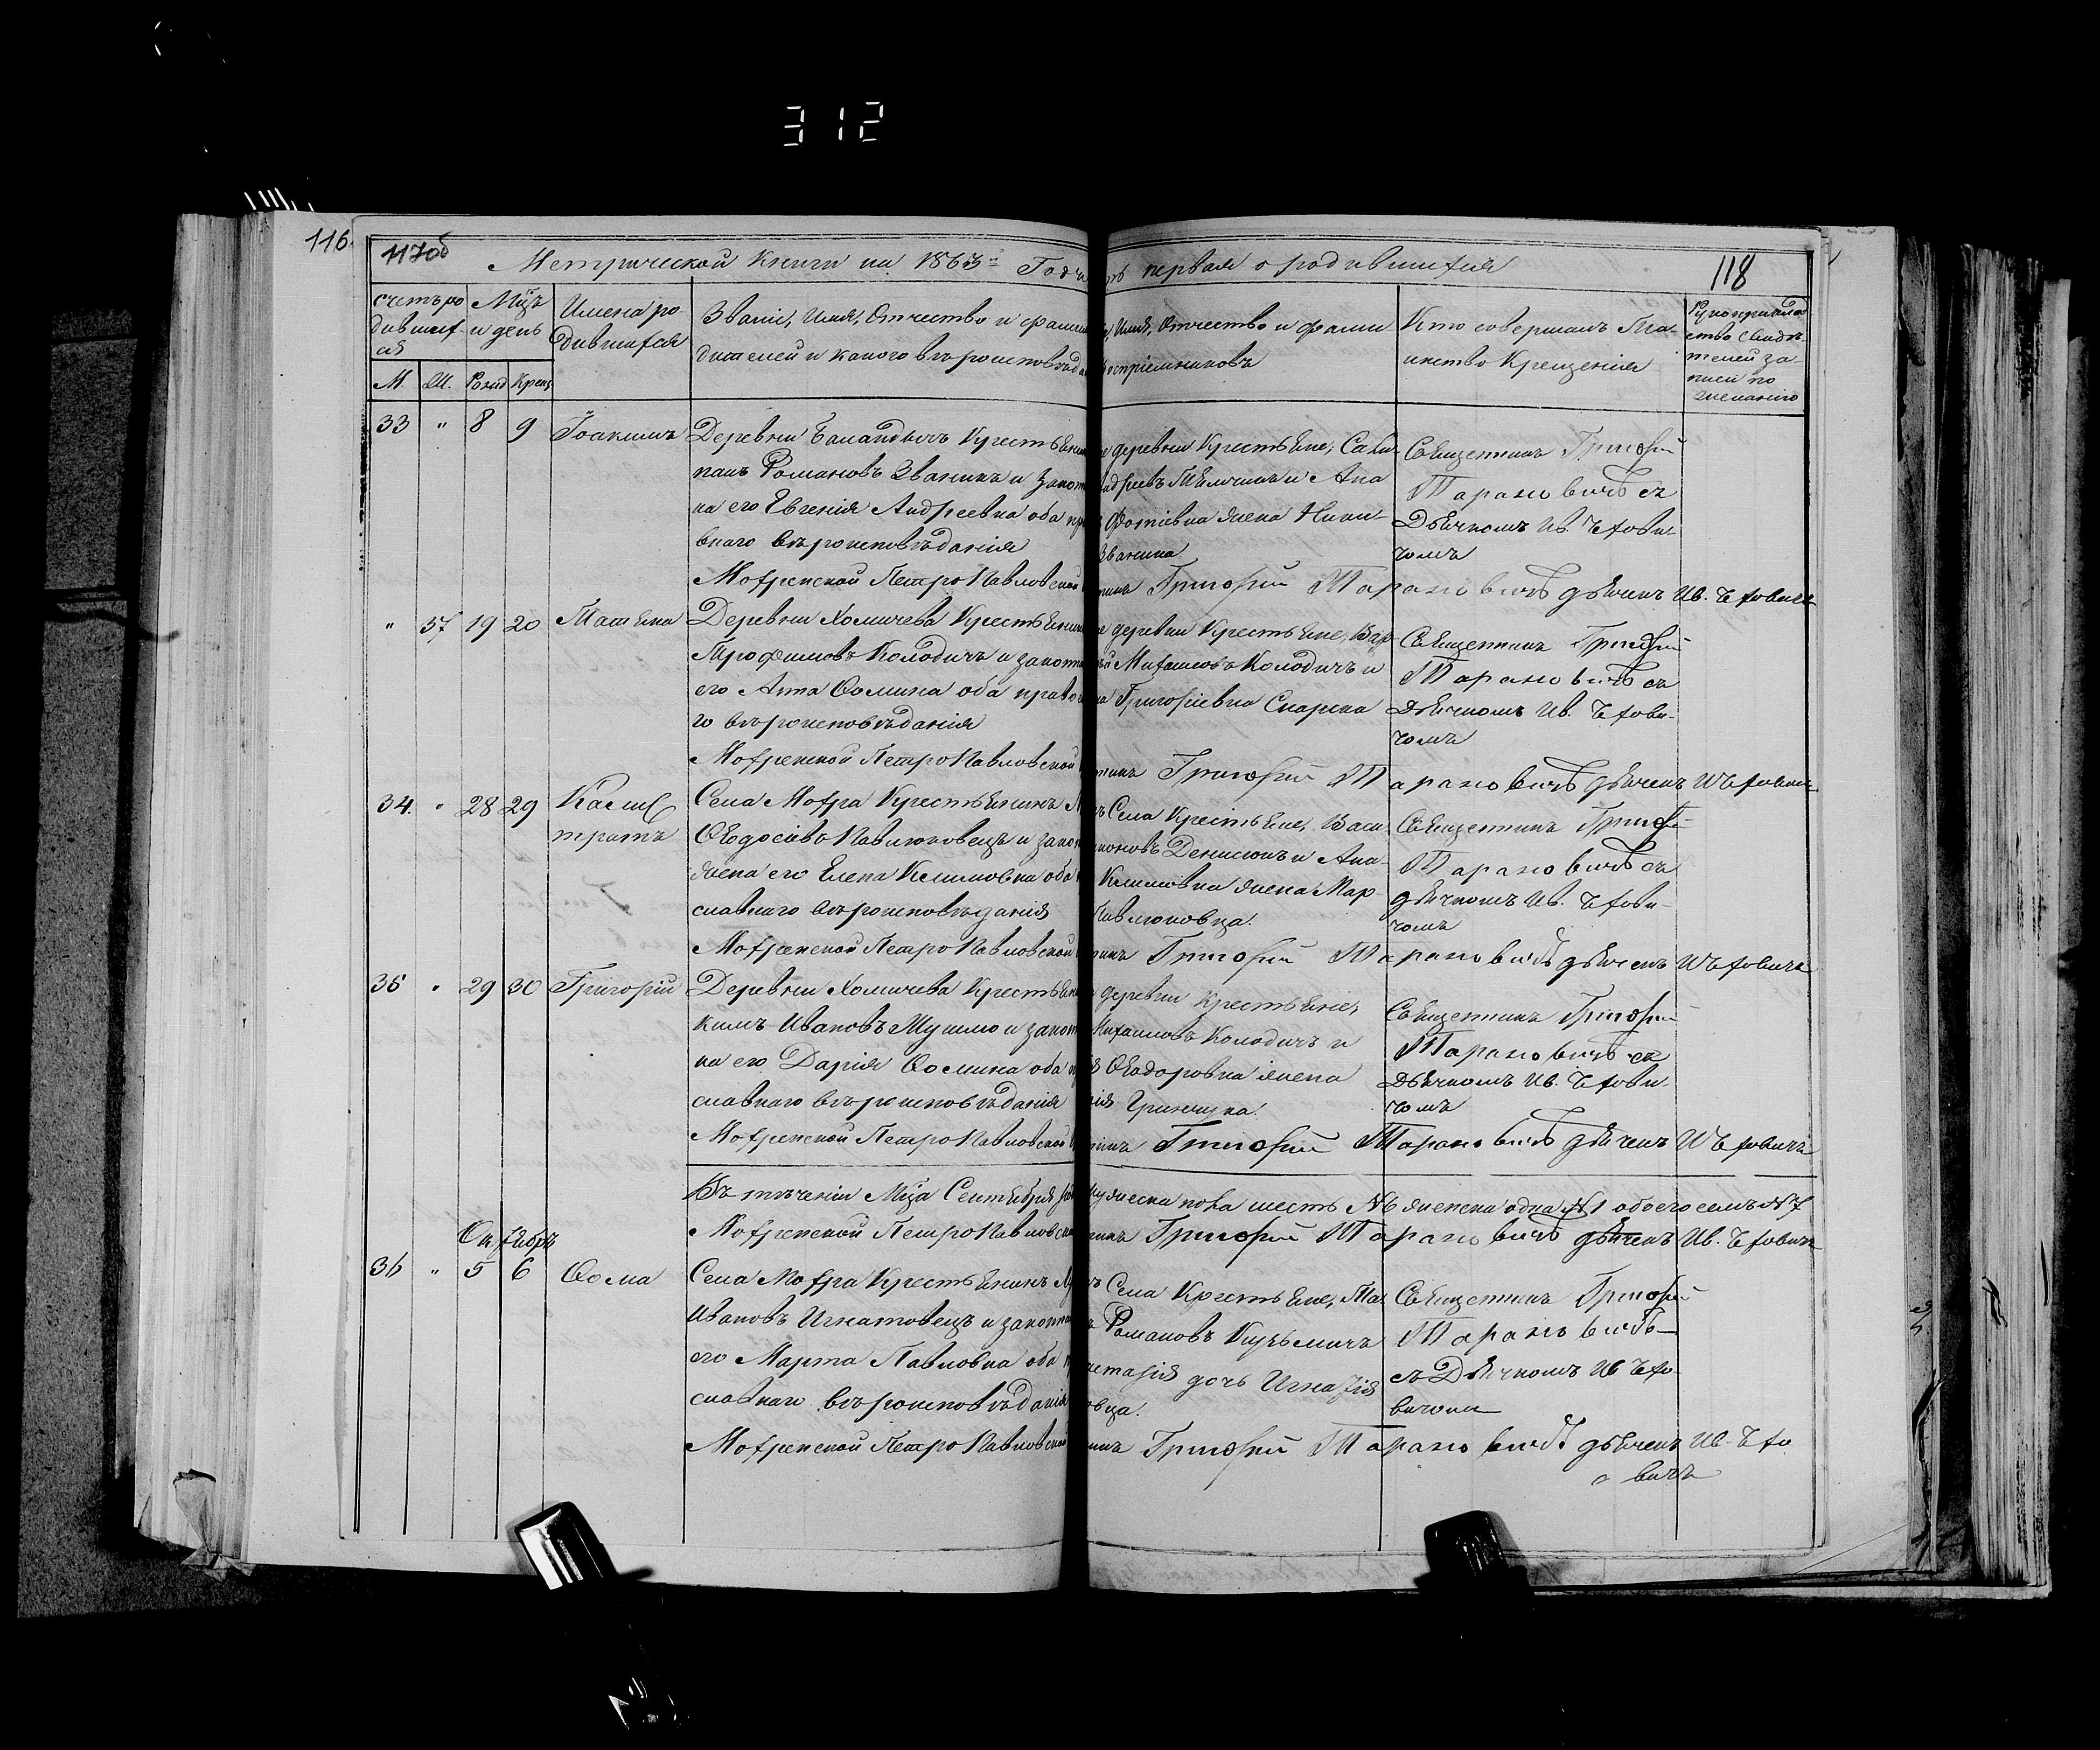 312
116
117об
118
Метрической книги на 1863й Годъ первая о родившихся
счетъ родившихся
Мцъ и день
Имена родившихся
Званіе, Имя, Отчество и фамил
дителей и какого вѣроисповѣда
Имя, Отчество и фами
воспріемниковъ
Кто совершалъ Та-
инство Крещенія
Рукоприклад
ство свидѣ-
телей за-
писи по
желанію
М. Ж. Рожд Крещ
33 " 8 9 Іоакимъ
Деревни Крестьянин
панъ Романовъ Званинъ и закон
на его Евгенія Андреевна оба пр
внаго вѣроисповѣданія
деревни Крестьяне, Сав
Ана
Фотіевна жена Ники-
Званина
Священникъ Григорій
Таранович съ
Дьячкомъ Ив. Чехови-
чомъ
Мохренской Петро Павловской
Григорій Таранович дьячекъ Ив. Чеховичъ
" 57 19 20 Татьяна
Деревни Хомичева Крестьянин
Трофимовъ Колодичъ и закон
его Анна Ѳомина оба право
го вѣроисповѣданія
деревни Крестьяне,
Михаиловъ Колодичъ и
на Григоріевна
Священникъ Григорій
Таранович съ
Дьячкомъ Ив. Чехови-
чомъ
Мохренской Петро Павловской
Григорій Таранович дьячекъ И Чеховичъ
34. " 28 29 Калис
тратъ
Села Мохра Крестьянинъ
Ѳеодосіевъ Павлюковецъ и закон
жена его Елена Климовна оба
славнаго вѣроисповѣданія
Села Крестьяне, Васи
Денисюкъ и Ана-
Климовна жена Мар-
Павлюковца.
Священникъ Григорій
Таранович съ
дьячкомъ Ив. Чехови-
чомъ
Мохренской Петро Павловской
Григорій Таранович дьячекъ И Чеховичъ
35 " 29 30 Григорій
Деревни Хомичева Крестьян
кимъ Ивановъ и закон
на его Дарія Ѳомина оба
славнаго вѣроисповѣданія
деревни Крестьяне,
Михаиловъ Колодичъ и
Ѳеодоровна жена
Священникъ Григорій
Таранович съ
Дьячкомъ Ив. Чехови-
чомъ
Мохренской Петро Павловской
Григорій Таранович дьячекъ И Чеховичъ
Въ теченіи Мца Сентября
мужеска пола шесть №6 женска одна №1 обоего семъ №7
Мохренской Петро Павловской
Григорій Таранович дьячекъ Ив. Чеховичъ
Октябрь
36 " 5 6 Ѳома
Села Мохра Крестьянинъ
Ивановъ Игнатовецъ и закон
его Марта Павловна оба
славнаго вѣроисповѣданія
Села Крестьяне,
Романовъ Кузьмичъ
дочь Игнатія
овца.
Священникъ Григорій
Таранович
съ Дьячкомъ Ив Чехо
вичомъ
Мохренской Петро Павловской
Григорій Таранович дьячекъ Ив. Чехо
вичъ